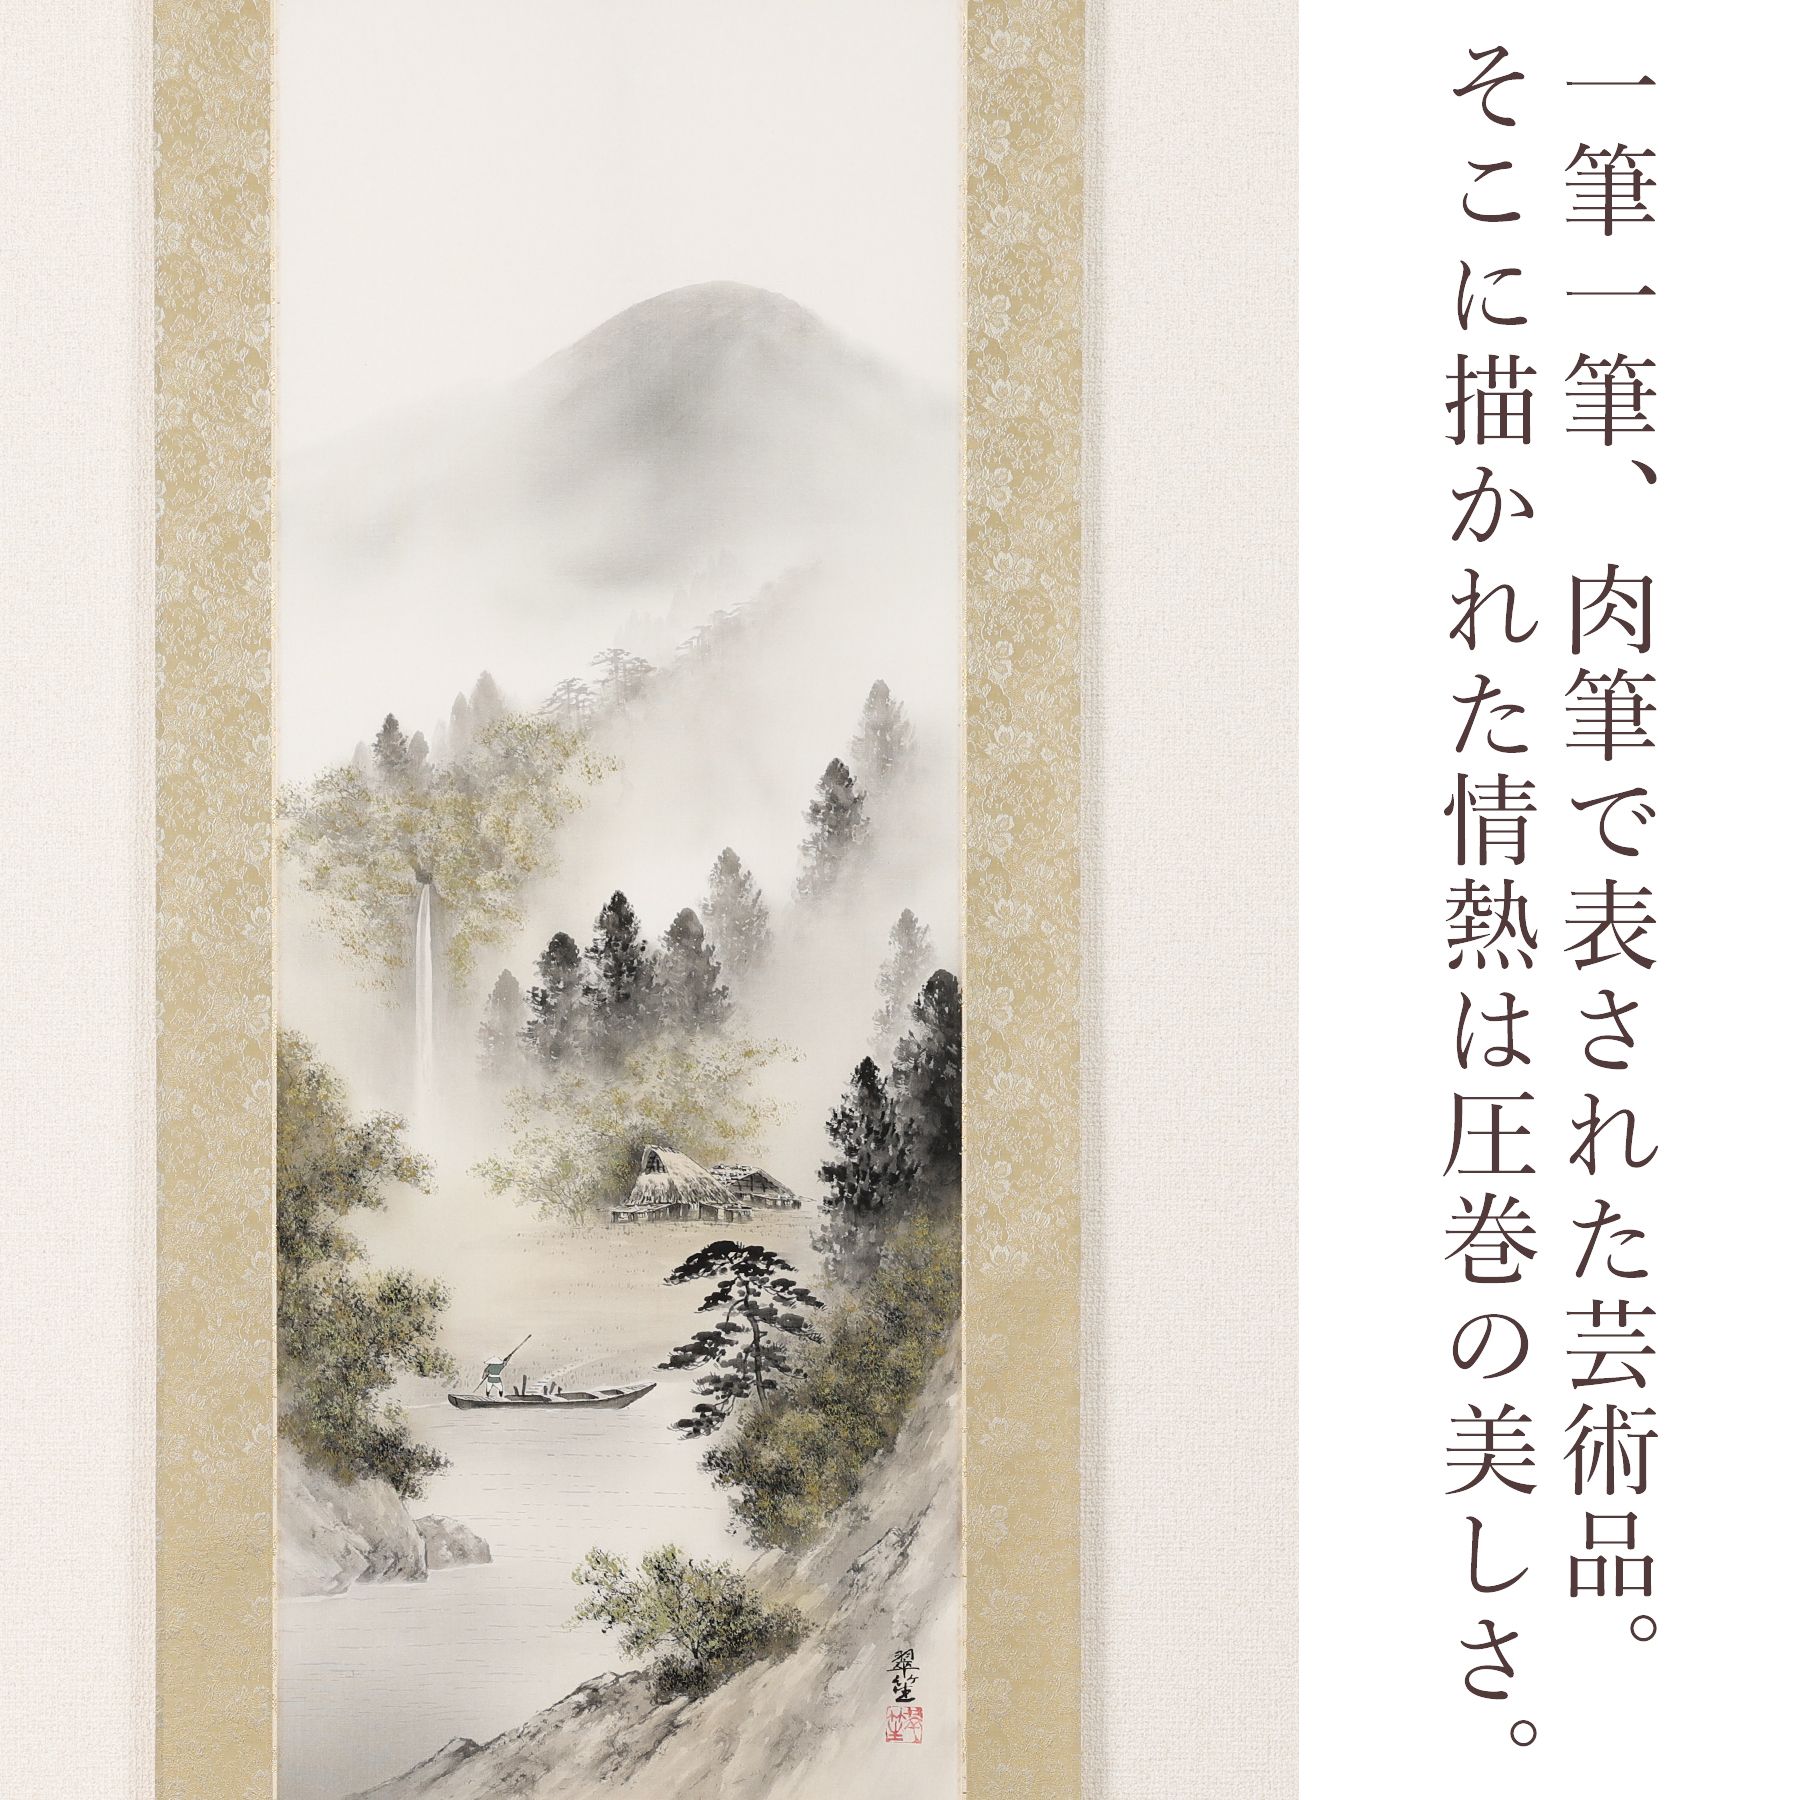 一筆一筆、肉筆で表された芸術品。
そこに描かれた情熱は圧巻の美しさ。
翠笙